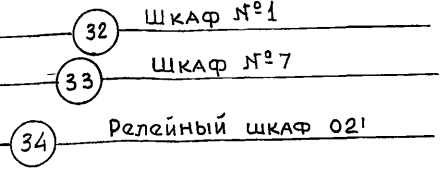 32 Шкаф №1
33 Шкаф №7
34 Релейный шкаф 021